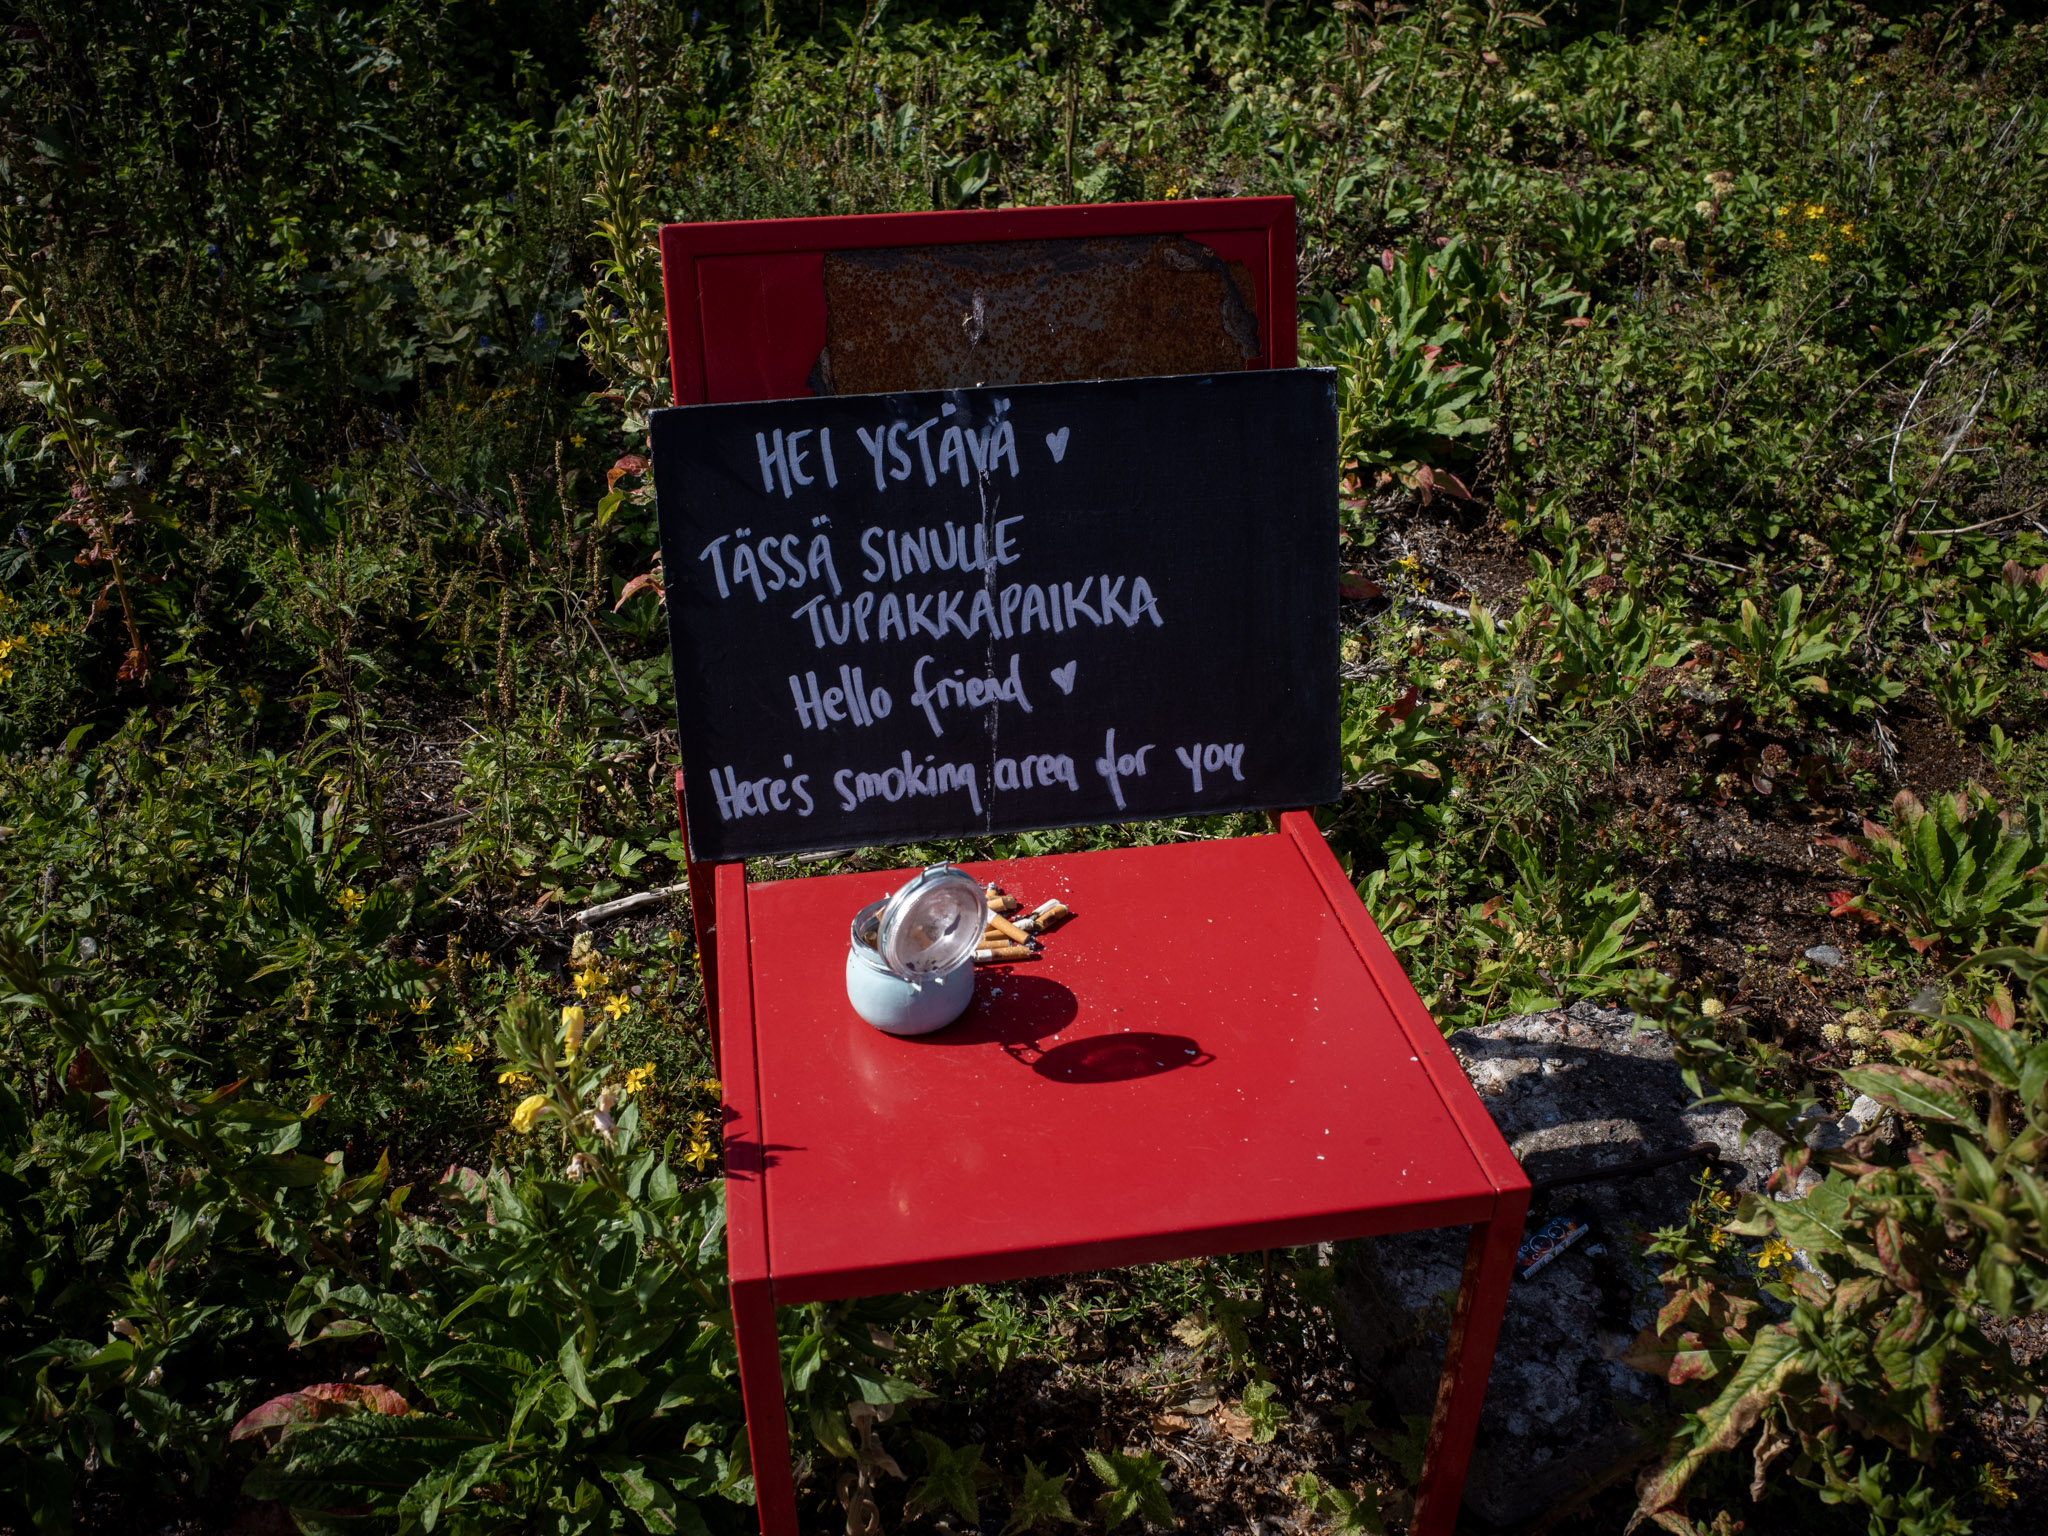 HEI YSTÄVÄ ♥
TÄSSÄ SINULLE
TUPAKKAPAIKKA
Hello friend ♥
Here's smoking area for you